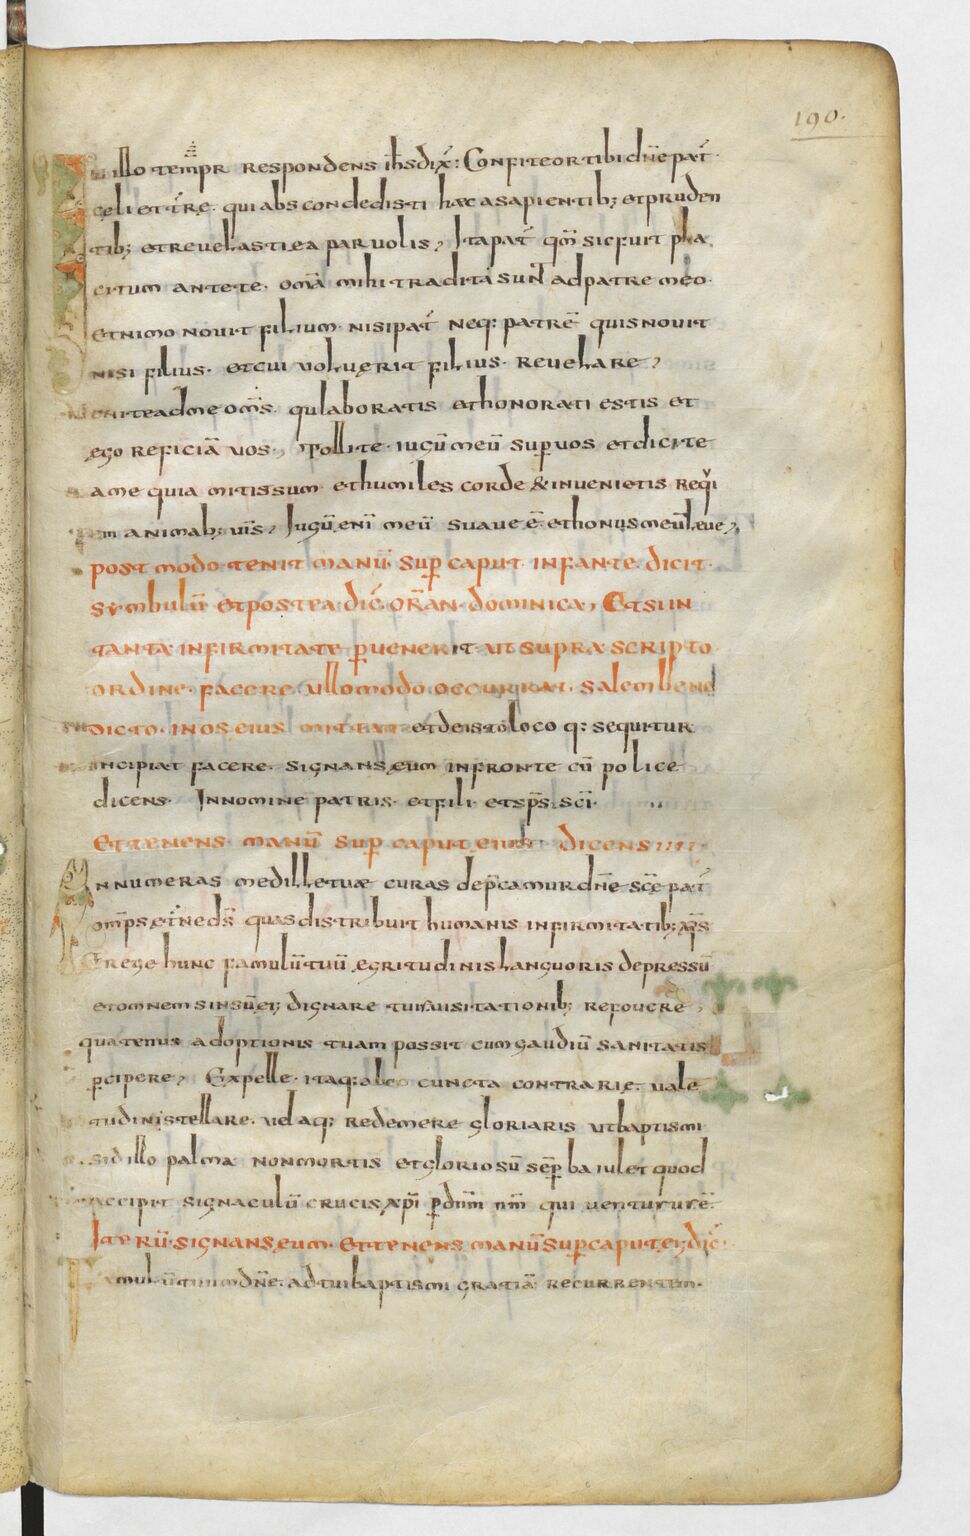 190.
In illo temp̄r respondens ih̄s dix̄: Confiteor tibi dn̄e pat̄
celi et tr̄e. qui abscondedisti hæc a sapientib; et pruden
tib; et revelasti ea parvolis, Ita pat̄ qm̄ sic fuit pla
citum ante te. om̄a mihi tradita sunt ad patre meo.
et nimo novit filium. nisi pat̄ neq: patrē quis novit
nisi filius. et cui voluerit filius. revelare,
enite ad me om̄s. qui laboratis et honorati estis et
ego reficiā vos., Tollite iugū meū sup̄ vos et dicite
a me quia mitis sum et humiles corde & invenietis requi
em animab; v̄is, Iugū enī meū suave ē et honus meū leve,
post modo tenit manū sup̄ caput infante. dicit.
symbulū et postea dic̄ oran̄ dominica, Et si in
tanta infirmitate p̄venerit ut supra scripto
ordine. facere ullo modo occurrat. sale bene
dicto. in os eius mittat et de isto loco q: sequitur
incipiat facere. signans eum in fronte cū police
dicens. In nomine patris. et fili. et sp̄s sc̄i.
et tenens. manū sup̄ caput eius. dicens
Innumeras medille tuæ curas dep̄camur dn̄e sc̄e pat̄
omp̄s et̄ne ds̄ quas distribuit humanis infirmitatib;
Erege hunc famulū tuū egritudinis languoris depressū
et omnem sinsū ei; dignare tuis visitationib; refovere,
quatenus adoptionis tuam possit cum gaudiū sanitatis
p̄cipere, Expelle. itaq: ab eo cuncta contrarie. vale
tudinis tellare. vel aq: redemere gloriaris ut baptismi
sid illo palma non mortis et gloriosū semp̄ baiulet quod
accipit signaculū crucis xp̄i p̄ dn̄m nm̄ qui venturus ē
Iterū. signans eum. et tenens manū sup̄ caput ei; dic̄.
Famulū tuum dn̄e. ad tui baptismi gratiā recurrentem.